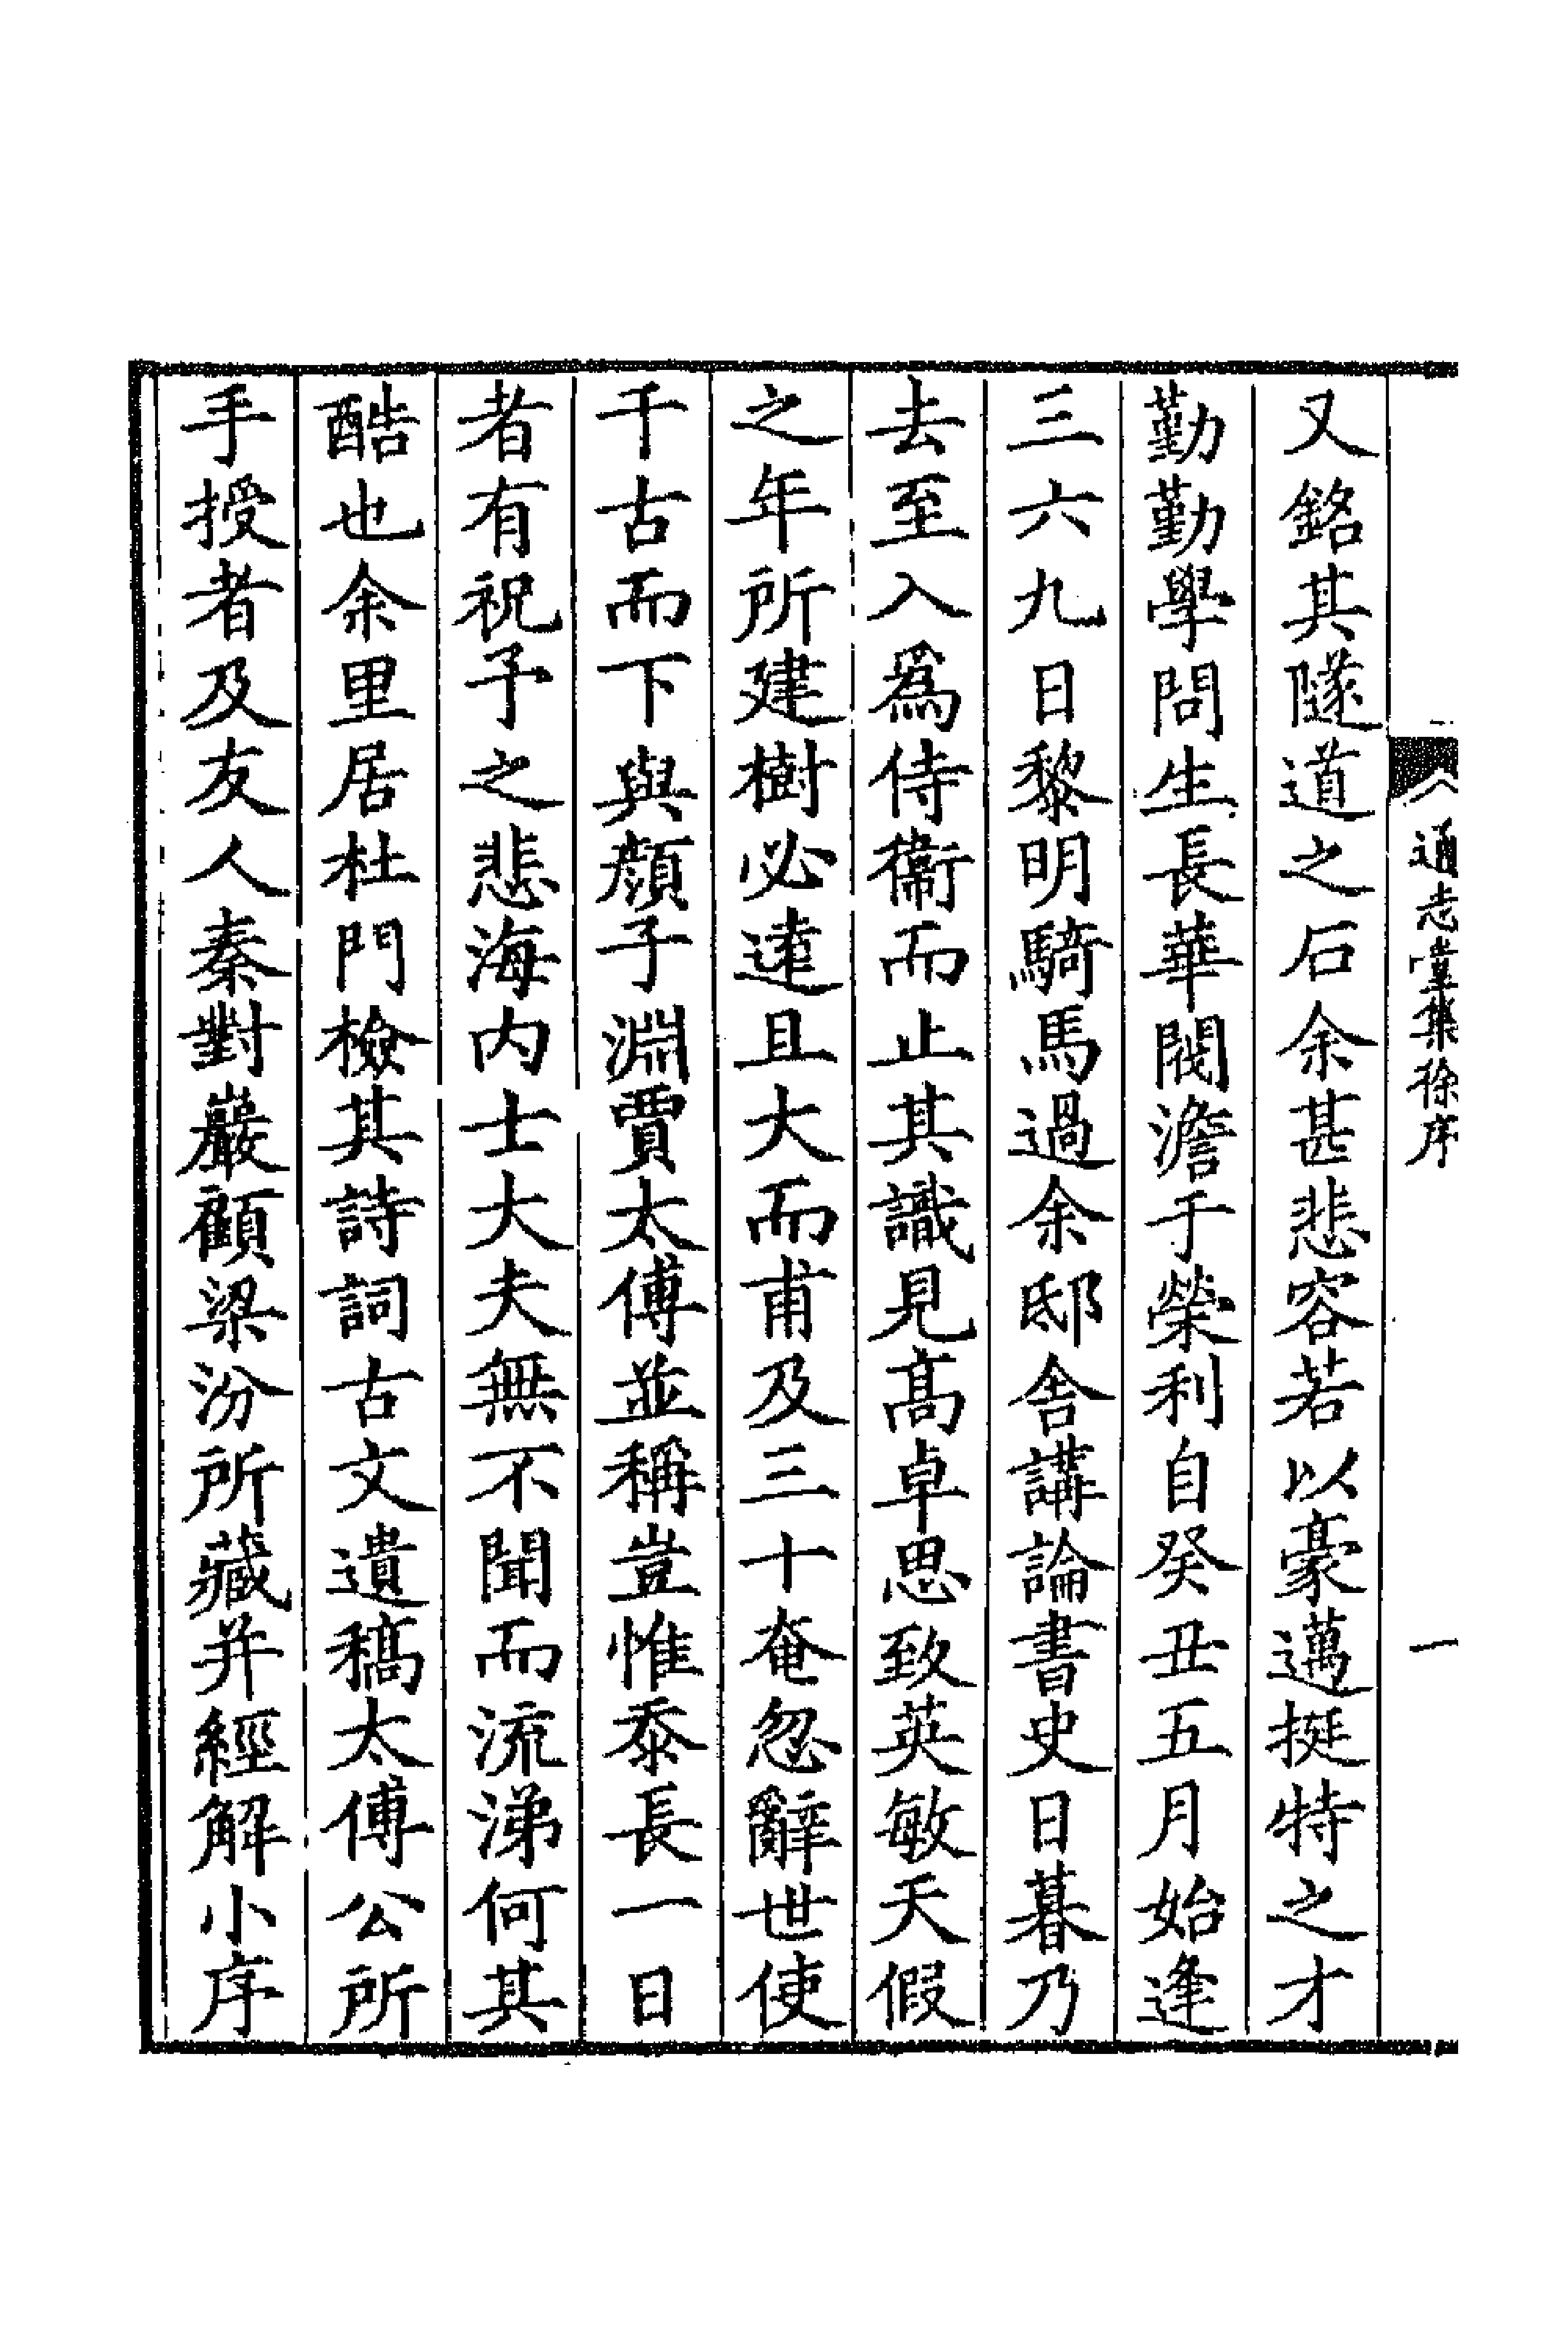 通志堂集徐序　一
又銘其隧道之石余甚悲容若以豪邁挺特之才
勤勤學問生長華閥澹于榮利自癸丑五月始逢
三六九日黎明騎馬過余邸舍講論書史日暮乃
去至入爲侍衞而止其識見高卓思致英敏天假
之年所建樹必遠且大而甫及三十奄忽辭世使
千古而下與顏子淵賈太傅並稱豈惟忝長一日
者有祝予之悲海內士大夫無不聞而流涕何其
酷也余里居杜門檢其詩詞古文遺稿太傅公所
手授者及友人秦對巖顧梁汾所藏并經解小序